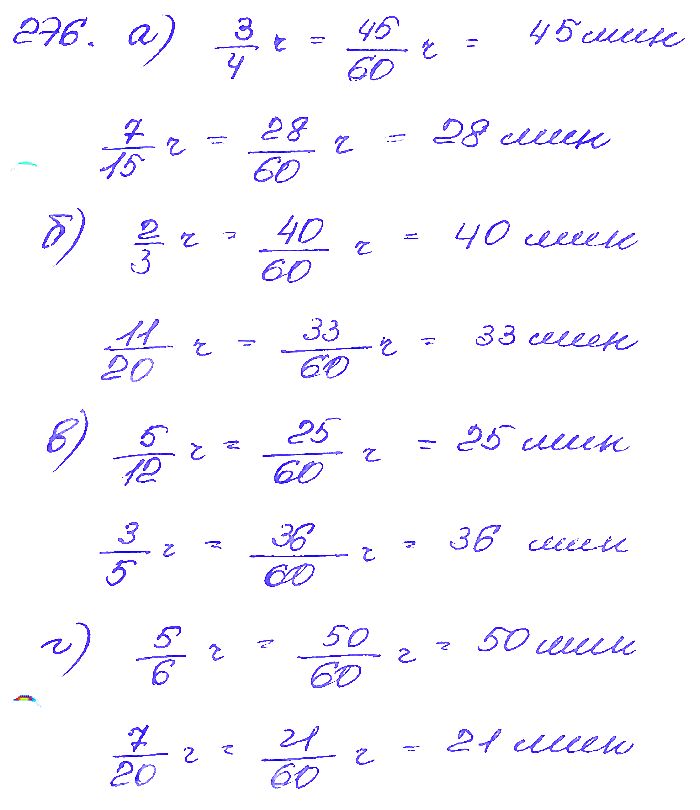 276. а) 3/4 ч = 45/60 ч = 45 мин
7/15 ч = 28/60 ч = 28 мин
б) 2/3 ч = 40/60 ч = 40 мин
11/20 ч = 33/60 ч = 33 мин
в) 5/12 ч = 25/60 ч = 25 мин
3/5 ч = 36/60 ч = 36 мин
г) 5/6 ч = 50/60 ч = 50 мин
7/20 ч = 21/60 ч = 21 мин